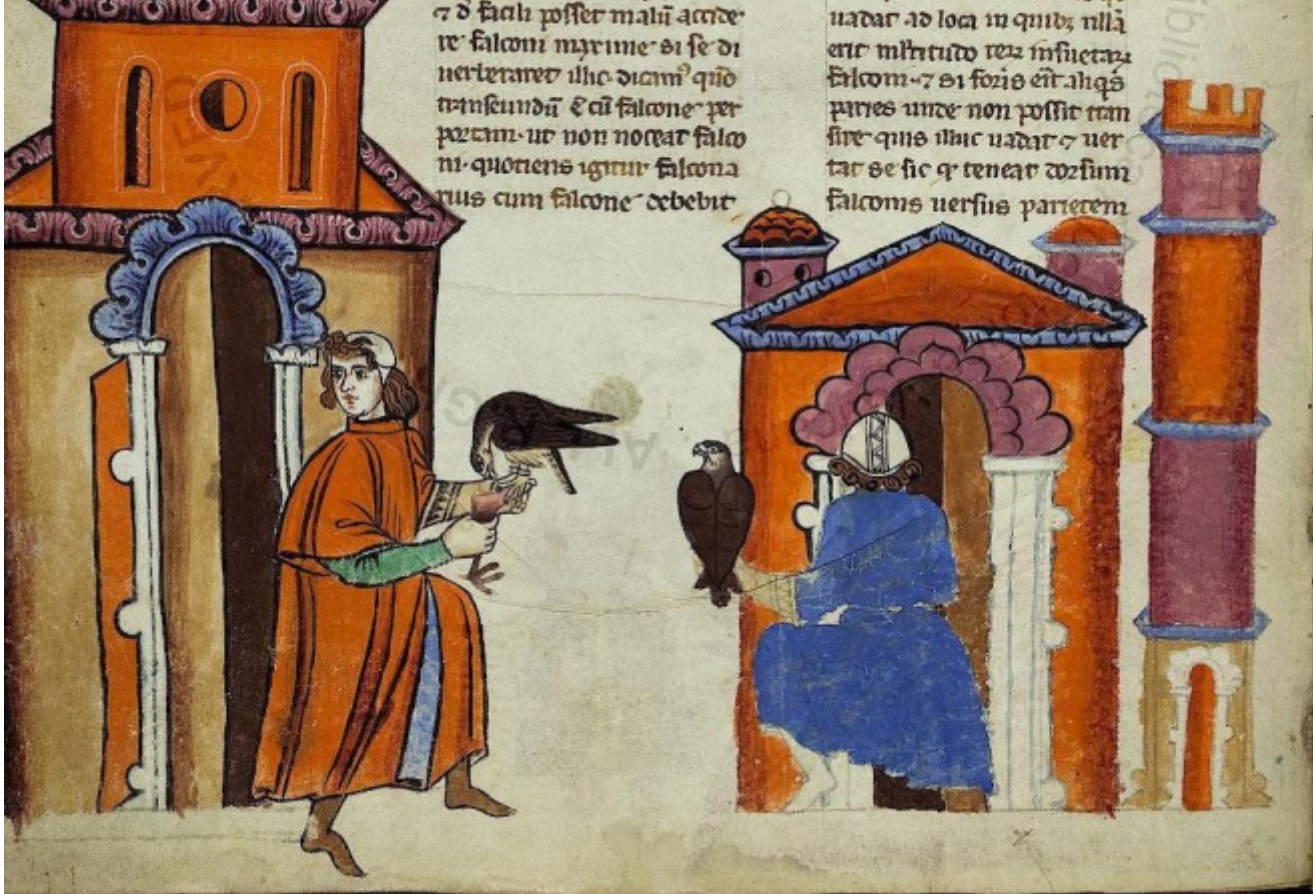 ⁊ d̄ facili posset malū accide
re falconi maxime si se di
uerberaret illic dicam᷒ quō
transeundū ē cū falcone per
portam ut non noceat falco
ni quotiens igitur falcona
rius cum falcone debebit
uadat ad loca in quibꝫ nllā
erit institudo
falconi ⁊ si foris eīt aliqs̄
paries unde non possit tran
sire quis illuc uadat ⁊ uer
tat se sic ꝙ teneat dorsum
falconis uersus parietem